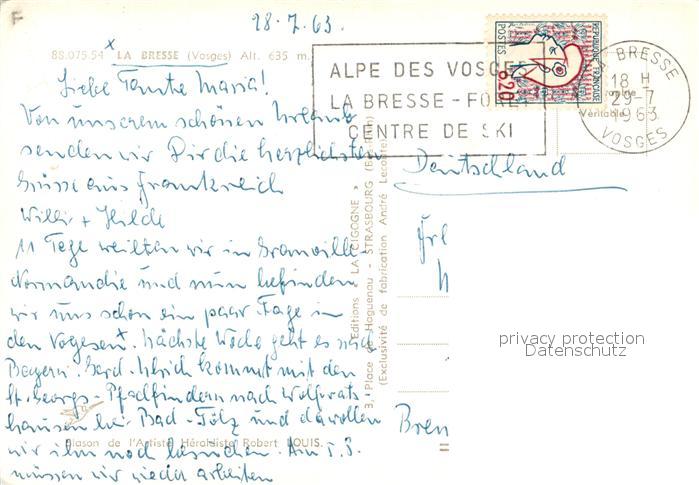 28.7.63.
88.075.54 LA BRESSE (Vosges) Alt. 635 m.
Liebe Tante Maria!
Von unserem schönen Urlaub
senden wir Dir die herzlichsten
Grüsse aus Frankreich
Willi + Hilde
11 Tage weilten wir in Granville-
Normandie und nun befinden
wir uns schon ein paar Tage in
den Vogesen. Nächste Woche geht es nach
Bayern. Gerd Ulrich kommt mit den
St. Georgs-Pfadfindern nach Wolfrats-
hausen bei Bad-Tölz und da wollen
wir ihn noch besuchen. Am 5.8.
müssen wir wieder arbeiten
Blason de l'Artiste Héraldiste Robert LOUIS.
Editions « LA CIGOGNE »
3, Place de Haguenau - STRASBOURG (Bas-Rhin)
(Exclusivité de fabrication André Leconte)
ALPE DES VOSGES
LA BRESSE - FORET
CENTRE DE SKI
POSTES
REPUBLIQUE FRANÇAISE
0,20
LA BRESSE
18 H
29-7
1963
VOSGES
Véritable
Deutschland
Frl
Brem
privacy protection
Datenschutz
F